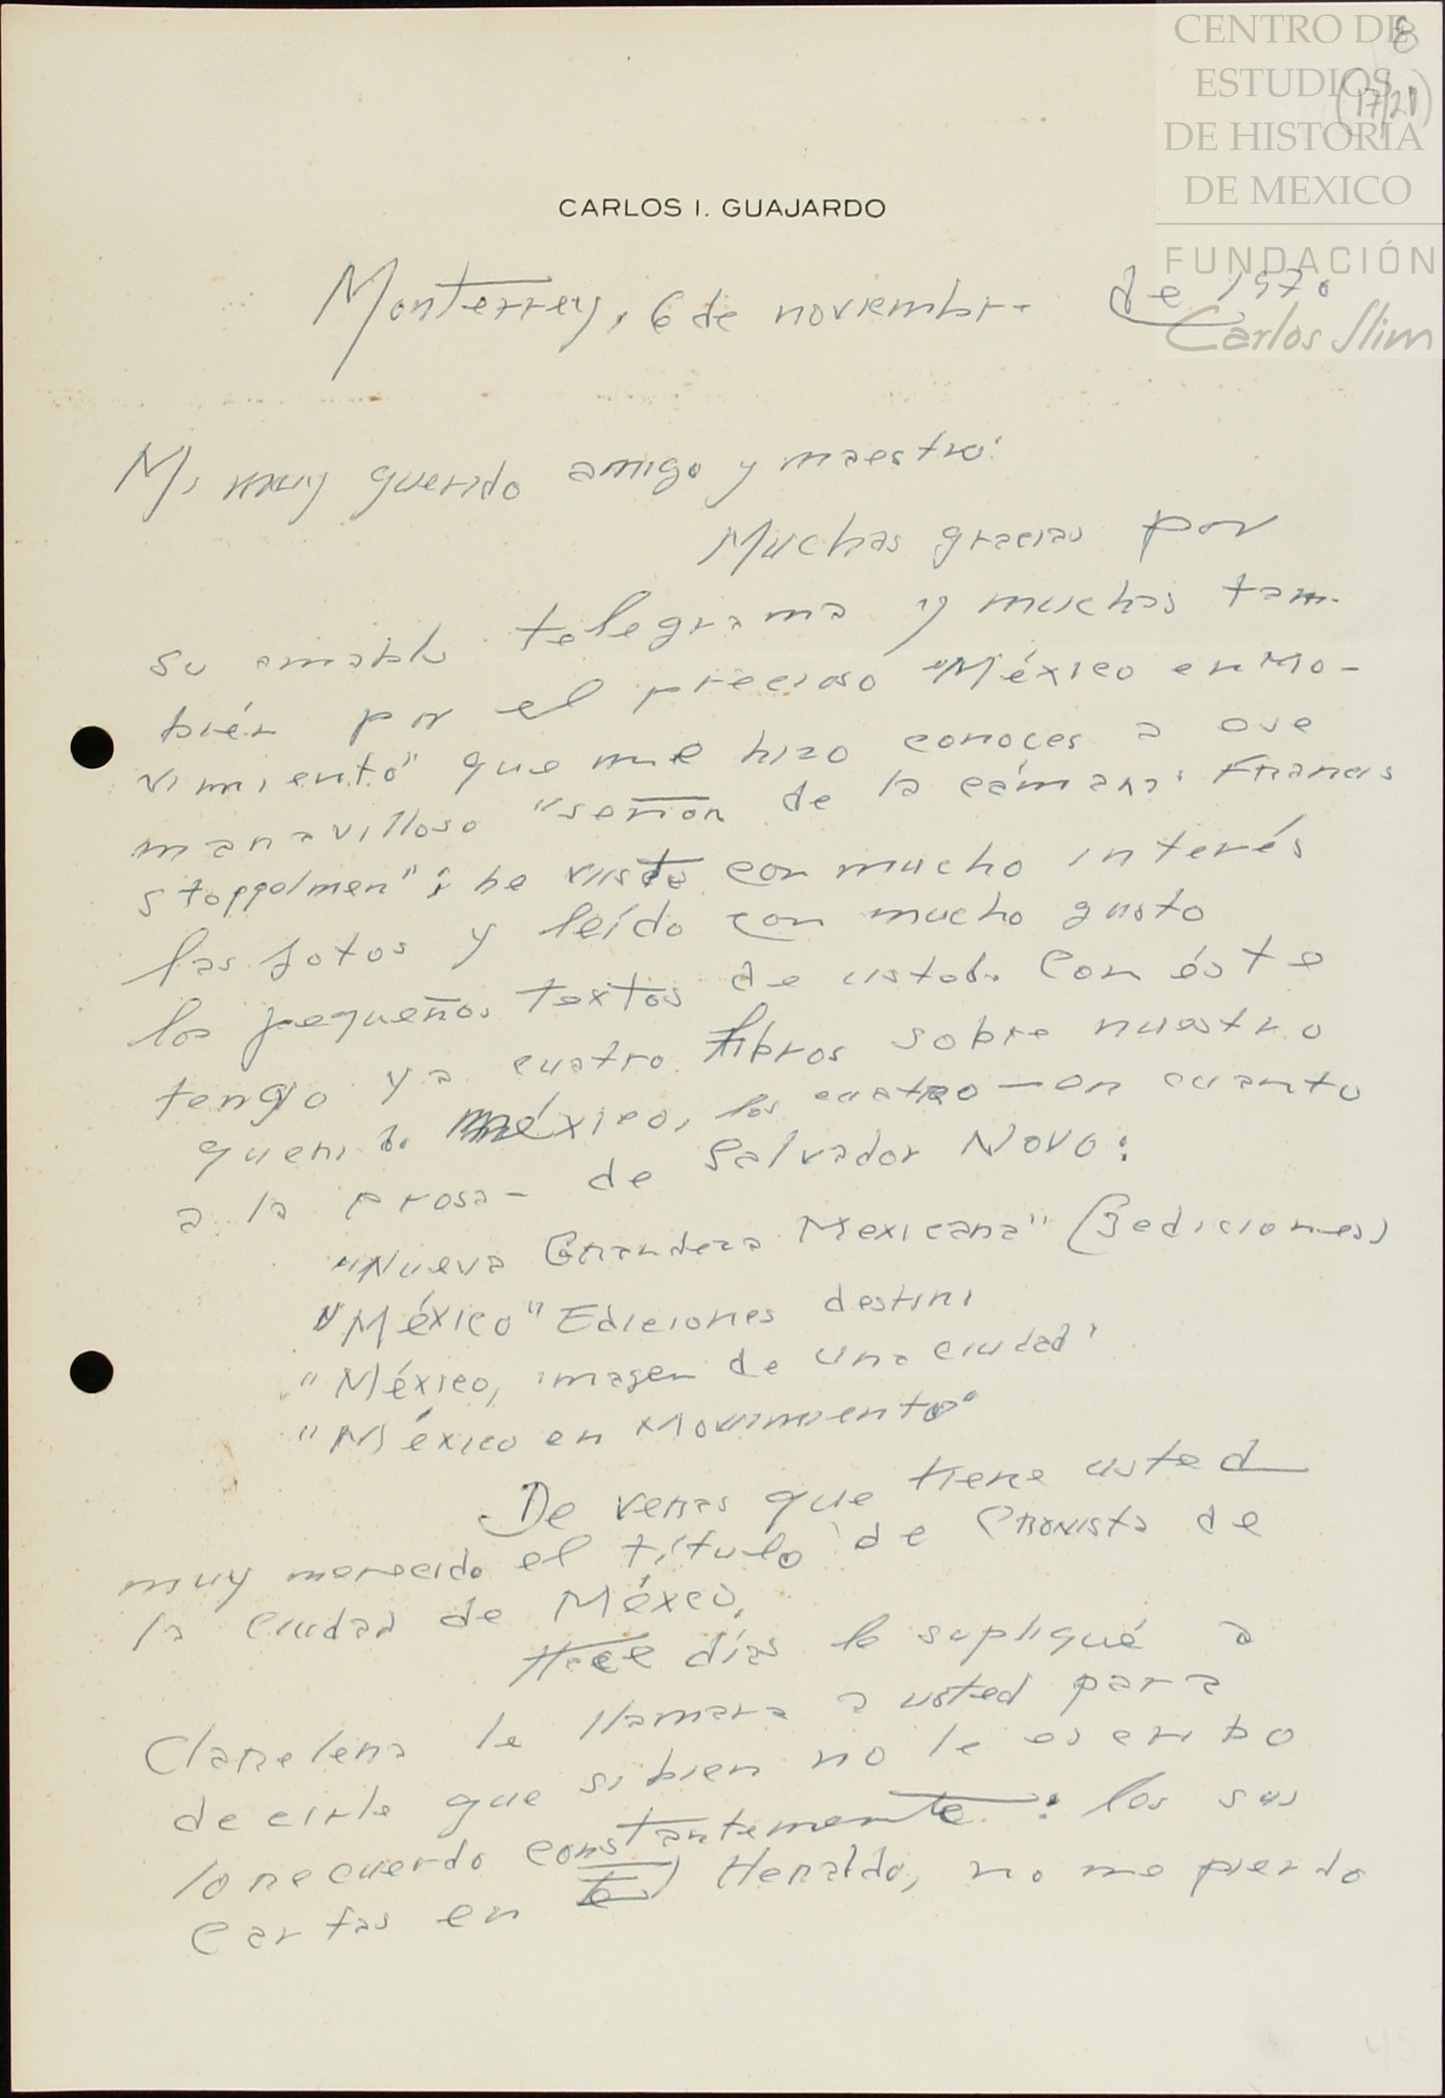 CENTRO DE
ESTUDIOS
DE HISTORIA
DE MEXICO
FUNDACIÓN
Carlos Slim
8
(17/21)
CARLOS I. GUAJARDO
Monterrey, 6 de noviembre de 1970
Mi muy querido amigo y maestro:
Muchas gracias por
su amable telegrama y muchas tam-
bién por el precioso "México en Mo-
vimiento" que me hizo conocer a ese
maravilloso "señor de la cámara: Francis
Stoppelman"; he visto con mucho interés
las fotos y leído con mucho gusto
los pequeños textos de usted. Con éste
tengo ya cuatro libros sobre nuestro
querido México, los cuatro — en cuanto
a la prosa — de Salvador Novo:
"Nueva Grandeza Mexicana" (3 ediciones)
"México" Ediciones destino
"México, imagen de una ciudad"
"México en Movimiento"
De veras que tiene usted
muy merecido el título de Cronista de
la Ciudad de México.
Hace días le supliqué a
Clarelena le llamara a usted para
decirle que si bien no le escribo
lo recuerdo constantemente: leo sus
Cartas en El Heraldo, no me pierdo